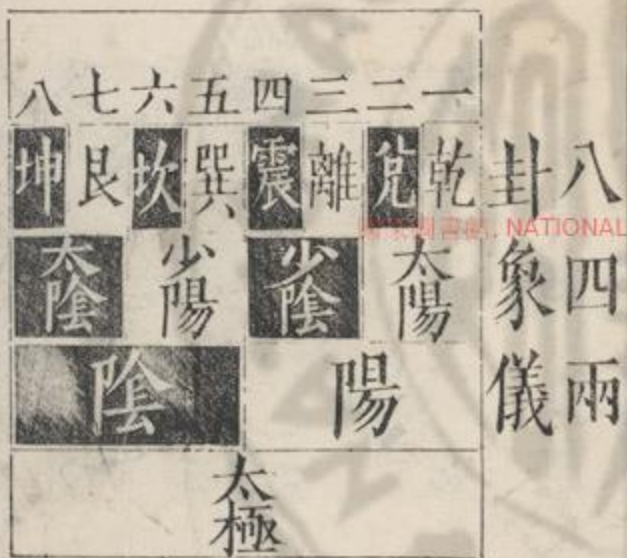 八卦
四象
兩儀
一 二 三 四 五 六 七 八
乾 兌 離 震 巽 坎 艮 坤
太陽 少陰 少陽 太陰
陽 陰
太極
NATIONAL